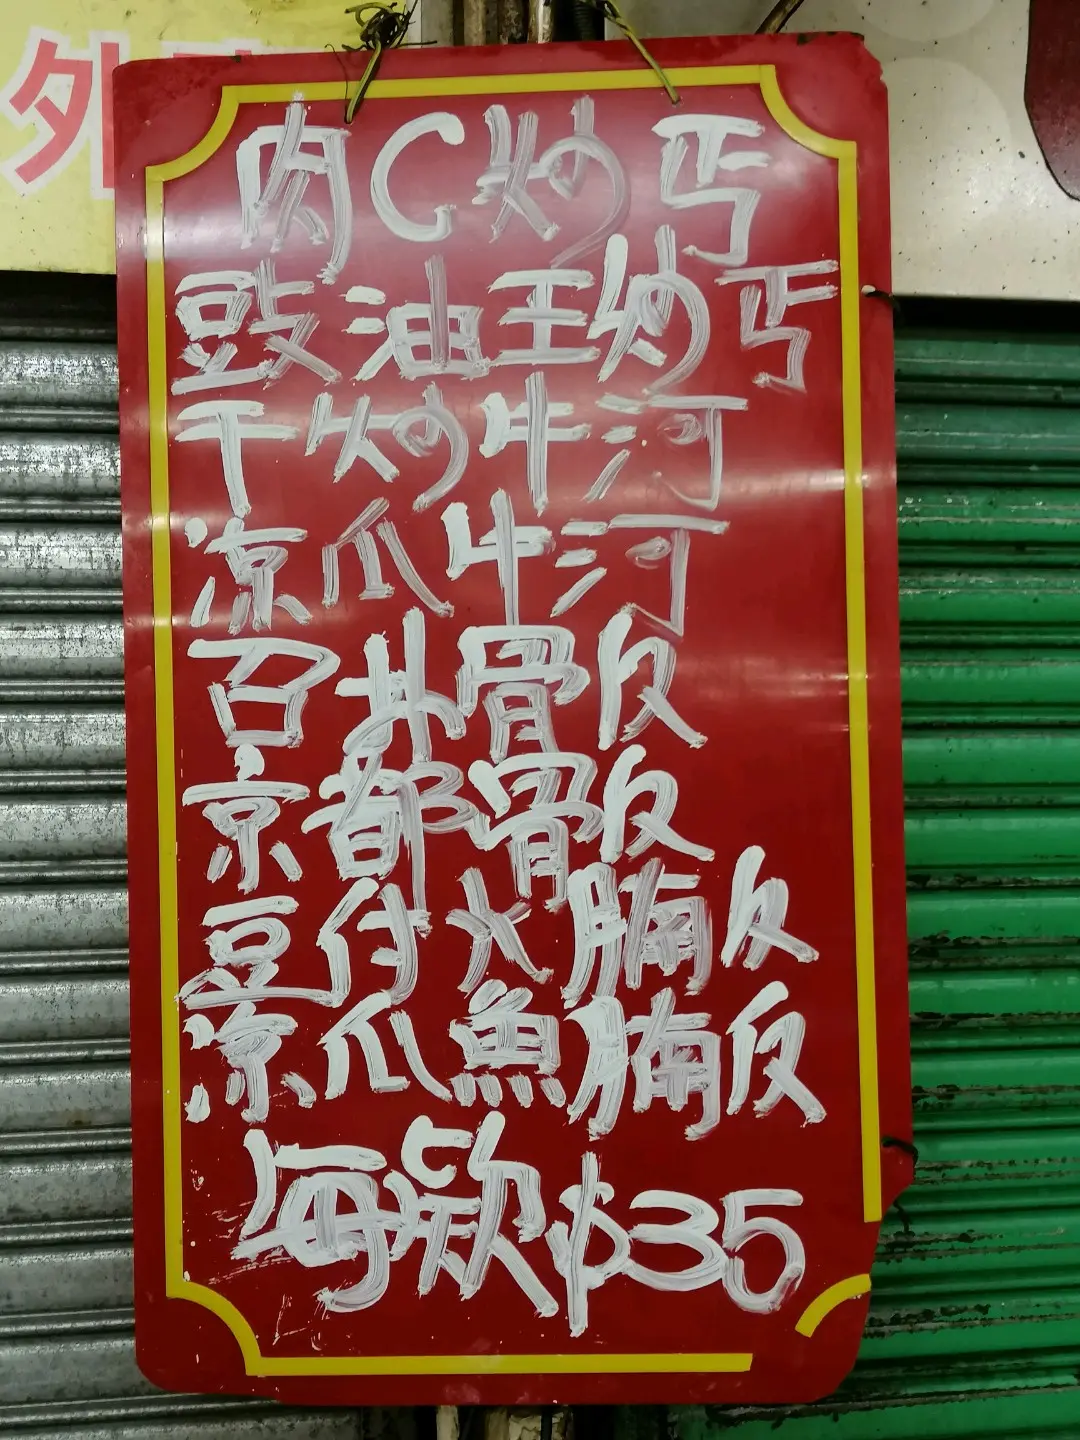 外
肉C炒丐
豉油王炒丐
干炒牛河
凉瓜牛河
召卦骨反
京都骨反
豆付火腩反
凉瓜魚腩反
每欵$35